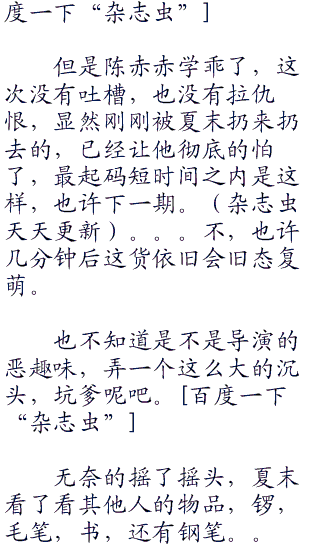 度一下“杂志虫”]
但是陈赤赤学乖了，这
次没有吐槽，也没有拉仇
恨，显然刚刚被夏末扔来扔
去的，已经让他彻底的怕
了，最起码短时间之内是这
样，也许下一期。（杂志虫
天天更新）。。。不，也许
几分钟后这货依旧会旧态复
萌。
也不知道是不是导演的
恶趣味，弄一个这么大的沉
头，坑爹呢吧。[百度一下
“杂志虫”]
无奈的摇了摇头，夏末
看了看其他人的物品，锣，
毛笔，书，还有钢笔。。